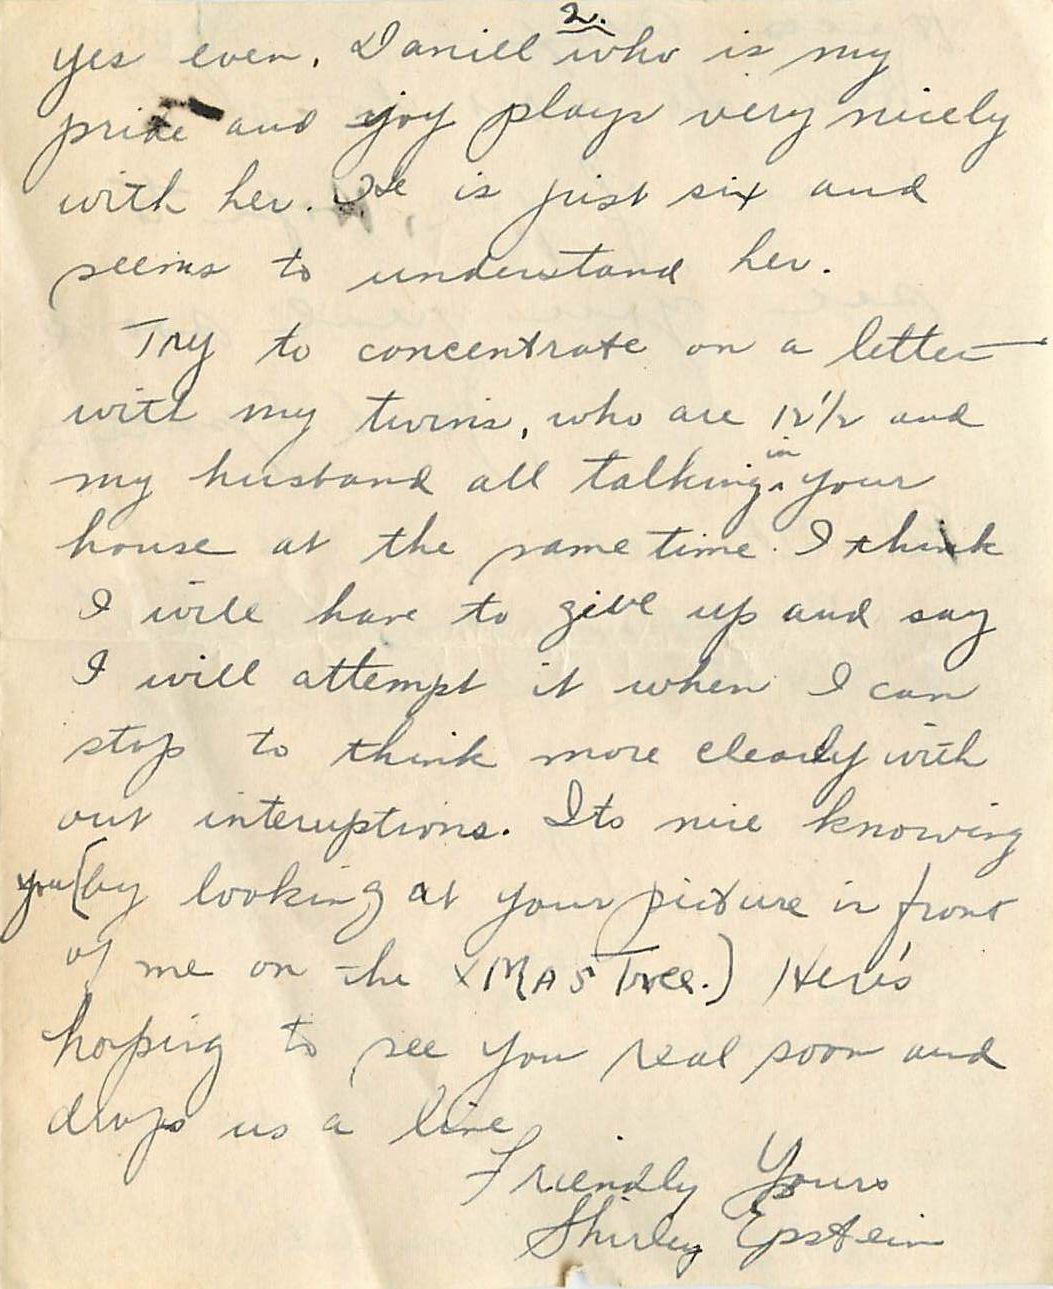 2.
yes even. Daniell who is my
pride and joy plays very nicely
with her. He is just six and
seems to understand her.
Try to concentrate on a letter
with my twins, who are 12 1/2 and
my husband all talking in your
house at the same time. I think
I will have to give up and say
I will attempt it when I can
stop to think more clearly with
out interuptions. Its nice knowing
you (by looking at your picture in front
of me on the XMAS Tree.) Here's
hoping to see you real soon and
drop us a line
Friendly Yours
Shirley Epstein